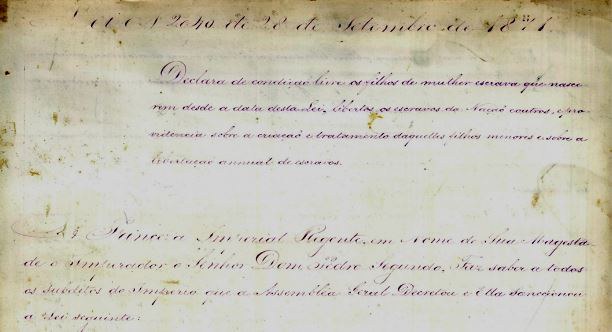 Lei N 2040 de 28 de Setembro de 1871.
Declara de condição livre os filhos de mulher escrava que nasce-
rem desde a data desta Lei, libertos os escravos da Nação e outros, e pro-
videncia sobre a criação e tratamento daquelles filhos menores e sobre a
libertação annual de escravos.
A Princeza Imperial Regente, em Nome de Sua Magesta-
de o Imperador o Senhor Dom Pedro Segundo, Faz saber a todos
os subditos do Imperio que a Assembléa Geral Decretou e Ella Sanccionou
a Lei seguinte: